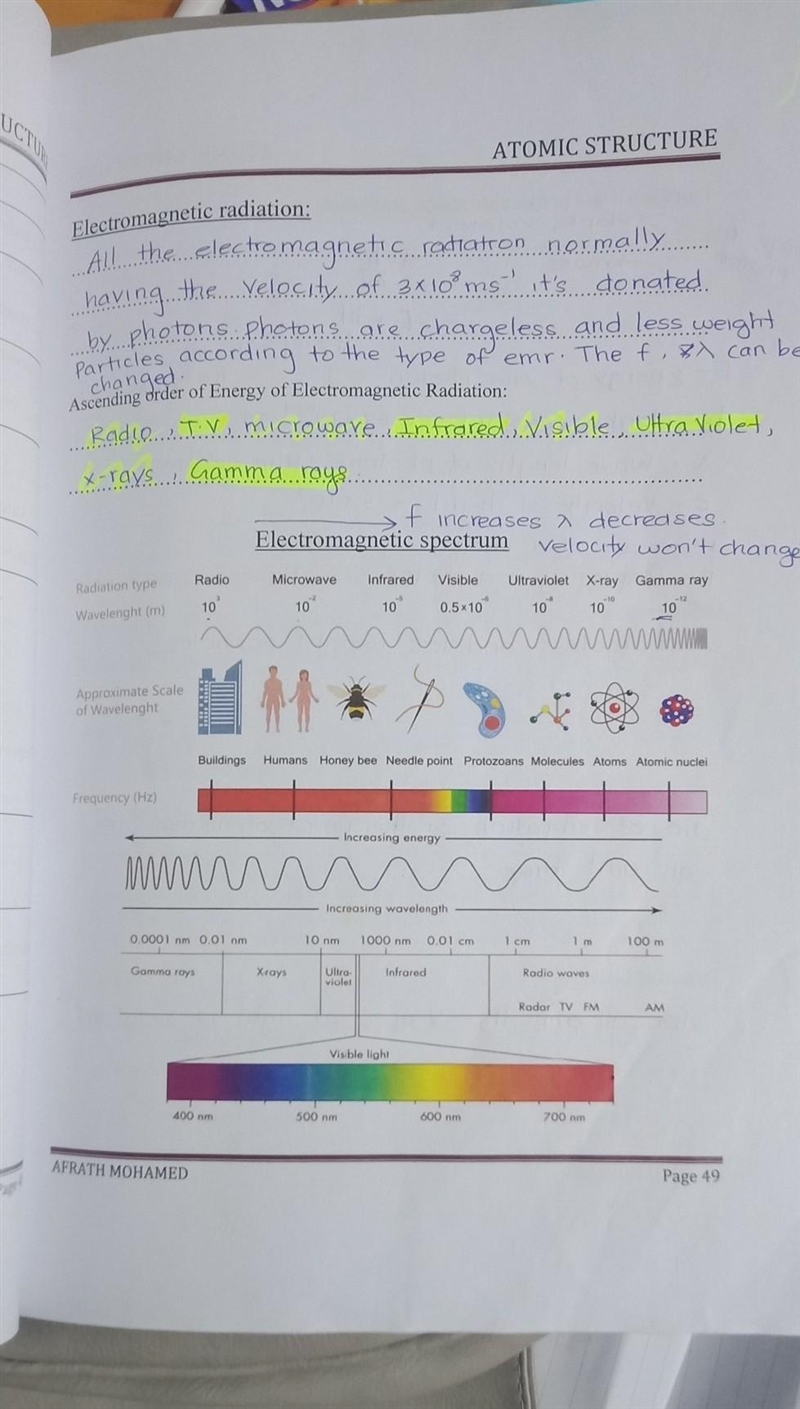 UCTUR
ATOMIC STRUCTURE
Electromagnetic radiation:
All the electromagnetic radiatron normally
having the velocity of 3×10⁸ ms⁻¹ it's donated.
by photons. photons are chargeless and less weight
particles according to the type of emr. The f, &λ can be
changed.
Ascending order of Energy of Electromagnetic Radiation:
Radio, T.V, microwave, Infrared, Visible, Ultra Violet,
x-rays, Gamma rays
f increases λ decreases.
Electromagnetic spectrum velocity won't change
Radiation type Radio Microwave Infrared Visible Ultraviolet X-ray Gamma ray
Wavelenght (m) 10³ 10⁻² 10⁻⁵ 0.5×10⁻⁶ 10⁻⁸ 10⁻¹⁰ 10⁻¹²
Approximate Scale
of Wavelenght
Buildings Humans Honey bee Needle point Protozoans Molecules Atoms Atomic nuclei
Frequency (Hz)
Increasing energy
Increasing wavelength
0.0001 nm 0.01 nm 10 nm 1000 nm 0.01 cm 1 cm 1 m 100 m
Gamma rays X-rays Ultra- Infrared Radio waves
violet
Radar TV FM AM
Visible light
400 nm 500 nm 600 nm 700 nm
AFRATH MOHAMED Page 49